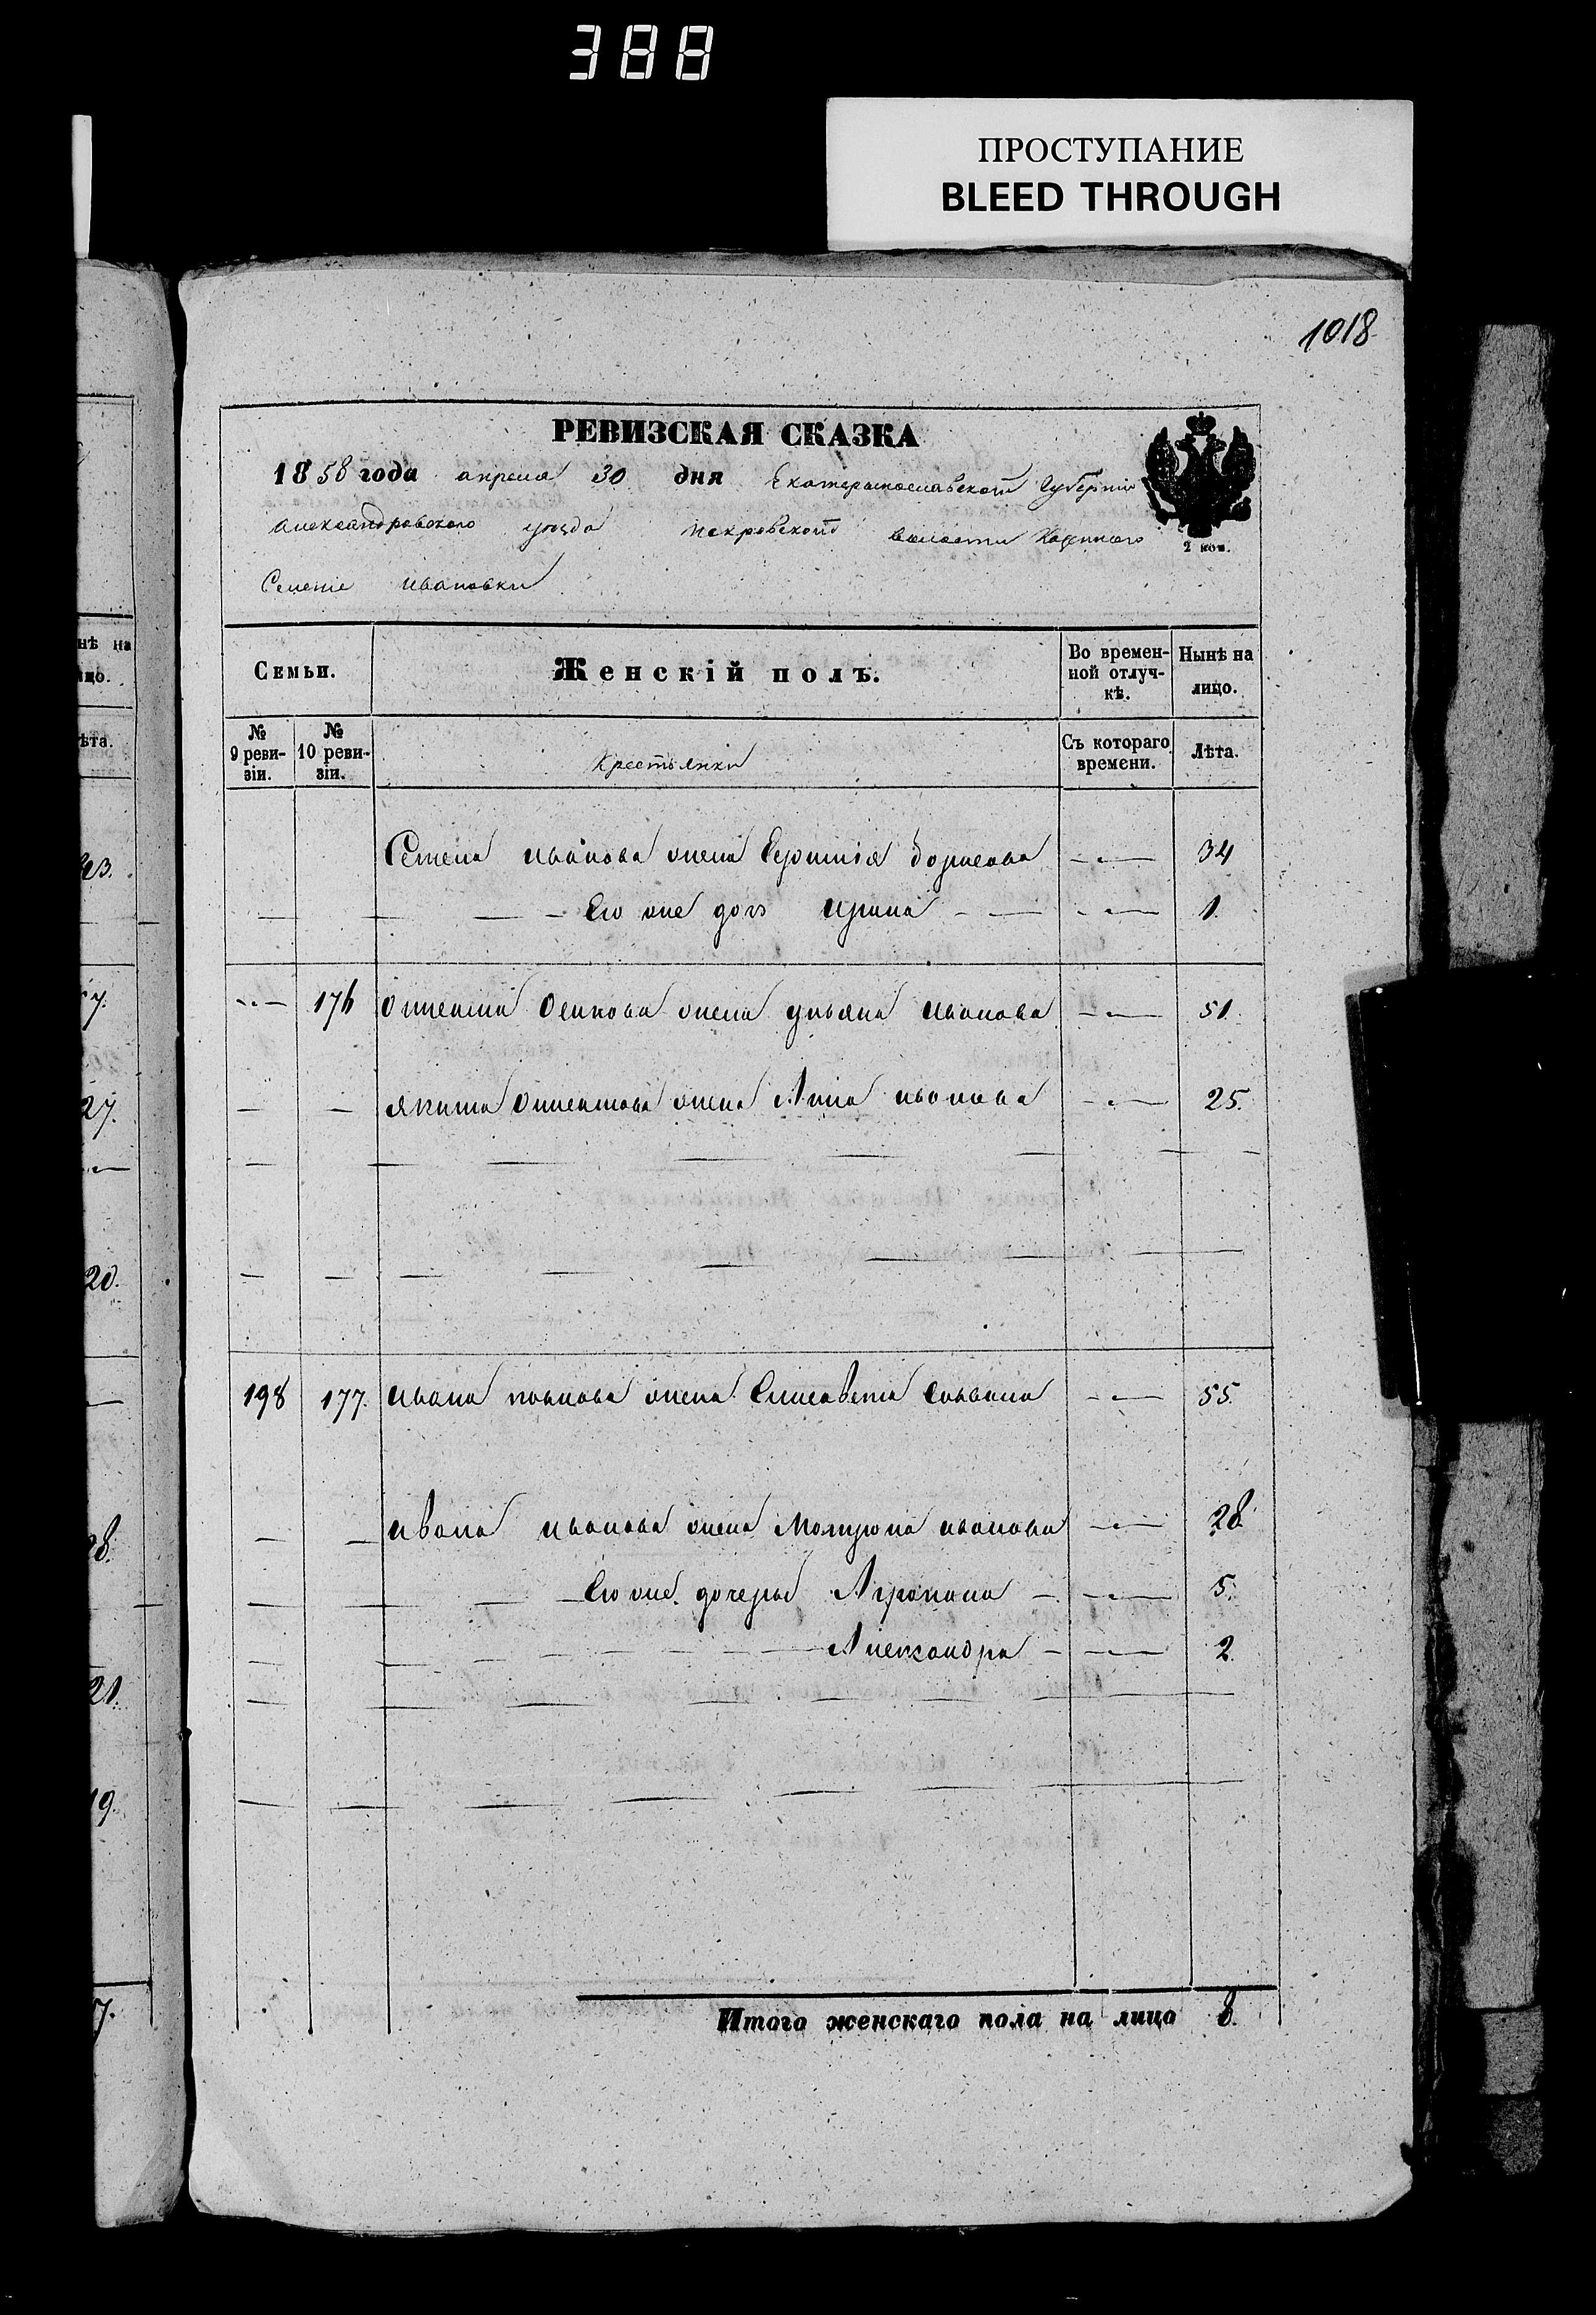 388
ПРОСТУПАНИЕ
BLEED THROUGH
1018
РЕВИЗСКАЯ СКАЗКА
1858 года апреля 30 дня Екатеринославской Губернiи
Александровского уезда Покровской волости Казенного
Селенiе Ивановки
2 коп.
Семьи.
Женскiй полъ.
Во времен-
ной отлуч-
кѣ.
Нынѣ на
лицо.
№
9 реви-
зiи.
№
10 реви-
зiи.
Крестьянки
Съ котораго
времени.
Лѣта.
Семена Иванова жена Борисова 34
Его же дочь Ирина 1.
176 Осипова жена Ульяна Иванова 51.
жена Анна Иванова 25.
198 177. Ивана жена Елисавета Саввина 55.
Ивана Иванова жена Мотрона Иванова 28
Его же дочерьи Агрипина 5.
Александра 2.
Итого женскаго пола на лицо 8.
нѣ на
цо.
ѣта.
7.
27.
20.
28.
21.
19.
7.